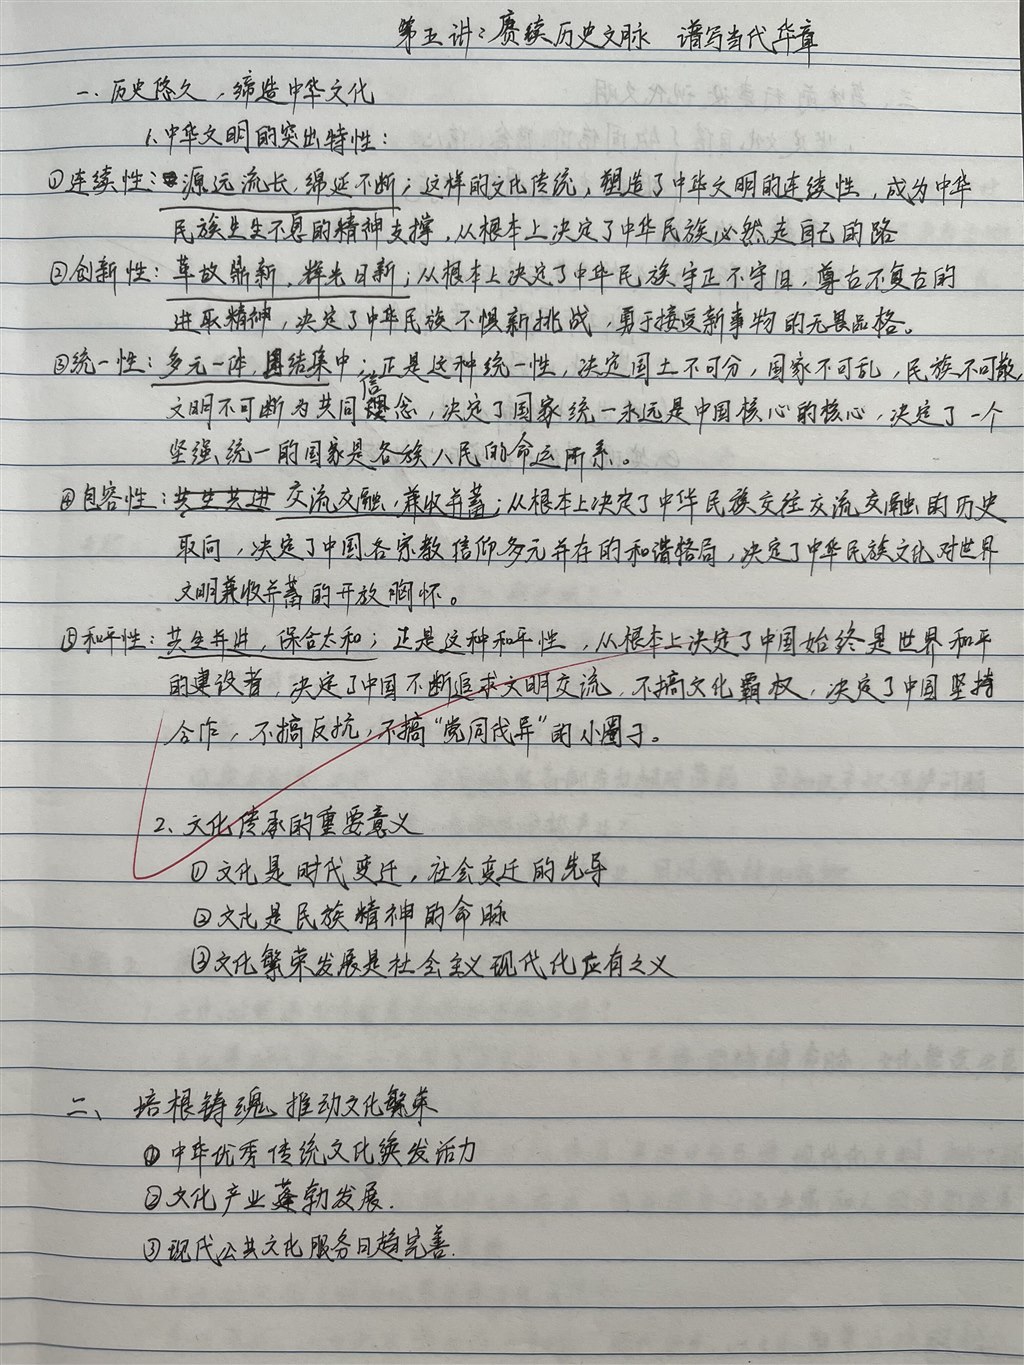 第五讲：赓续历史文脉 谱写当代华章
一、历史悠久，缔造中华文化
1、中华文明的突出特性：
①连续性：源远流长，绵延不断；这样的文化传统，塑造了中华文明的连续性，成为中华
民族生生不息的精神支撑，从根本上决定了中华民族必然走自己的路
②创新性：革故鼎新，辉光日新；从根本上决定了中华民族守正不守旧，尊古不复古的
进取精神，决定了中华民族不惧新挑战，勇于接受新事物的无畏品格。
③统一性：多元一体，团结集中；正是这种统一性，决定国土不可分，国家不可乱，民族不可散，
文明不可断为共同信念，决定了国家统一永远是中国核心的核心，决定了一个
坚强统一的国家是各族人民的命运所系。
④包容性：共生共进 交流交融，兼收并蓄；从根本上决定了中华民族交往交流交融的历史
取向，决定了中国各宗教信仰多元并存的和谐格局，决定了中华民族文化对世界
文明兼收并蓄的开放胸怀。
⑤和平性：共生并进，保合太和；正是这种和平性，从根本上决定了中国始终是世界和平
的建设者，决定了中国不断追求文明交流，不搞文化霸权，决定了中国坚持
合作，不搞反抗，不搞“党同伐异”的小圈子。
2、文化传承的重要意义
①文化是时代变迁，社会变迁的先导
②文化是民族精神的命脉
③文化繁荣发展是社会主义现代化应有之义
二、培根铸魂 推动文化繁荣
①中华优秀传统文化焕发活力
②文化产业蓬勃发展.
③现代公共文化服务日趋完善.